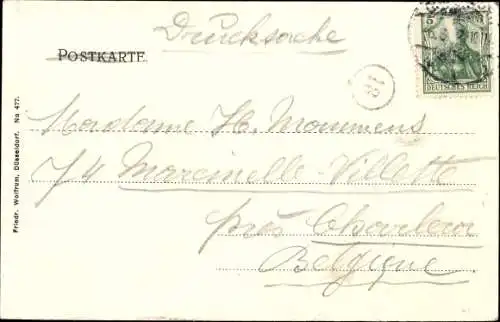 Drucksache
POSTKARTE
5
DEUTSCHES REICH
18
Madame H. Mommens
74 Marcinelle-Villette
près Charleroi
Belgique
Friedr. Wolfrum, Düsseldorf. No 477.